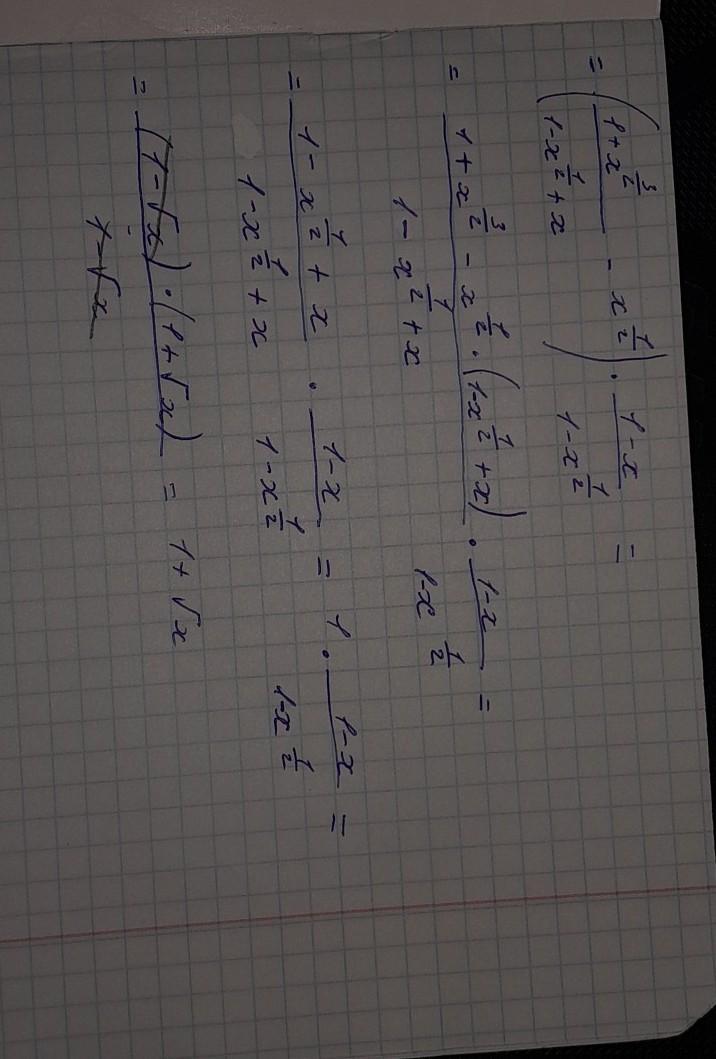 = ((1+x^(3/2))/(1-x^(1/2)+x) - x^(1/2)) · (1-x)/(1-x^(1/2)) =
= (1+x^(3/2) - x^(1/2) · (1-x^(1/2)+x))/(1-x^(1/2)+x) · (1-x)/(1-x^(1/2)) =
= (1-x^(1/2)+x)/(1-x^(1/2)+x) · (1-x)/(1-x^(1/2)) = 1 · (1-x)/(1-x^(1/2)) =
= ((1-√x) · (1+√x))/(1-√x) = 1+√x